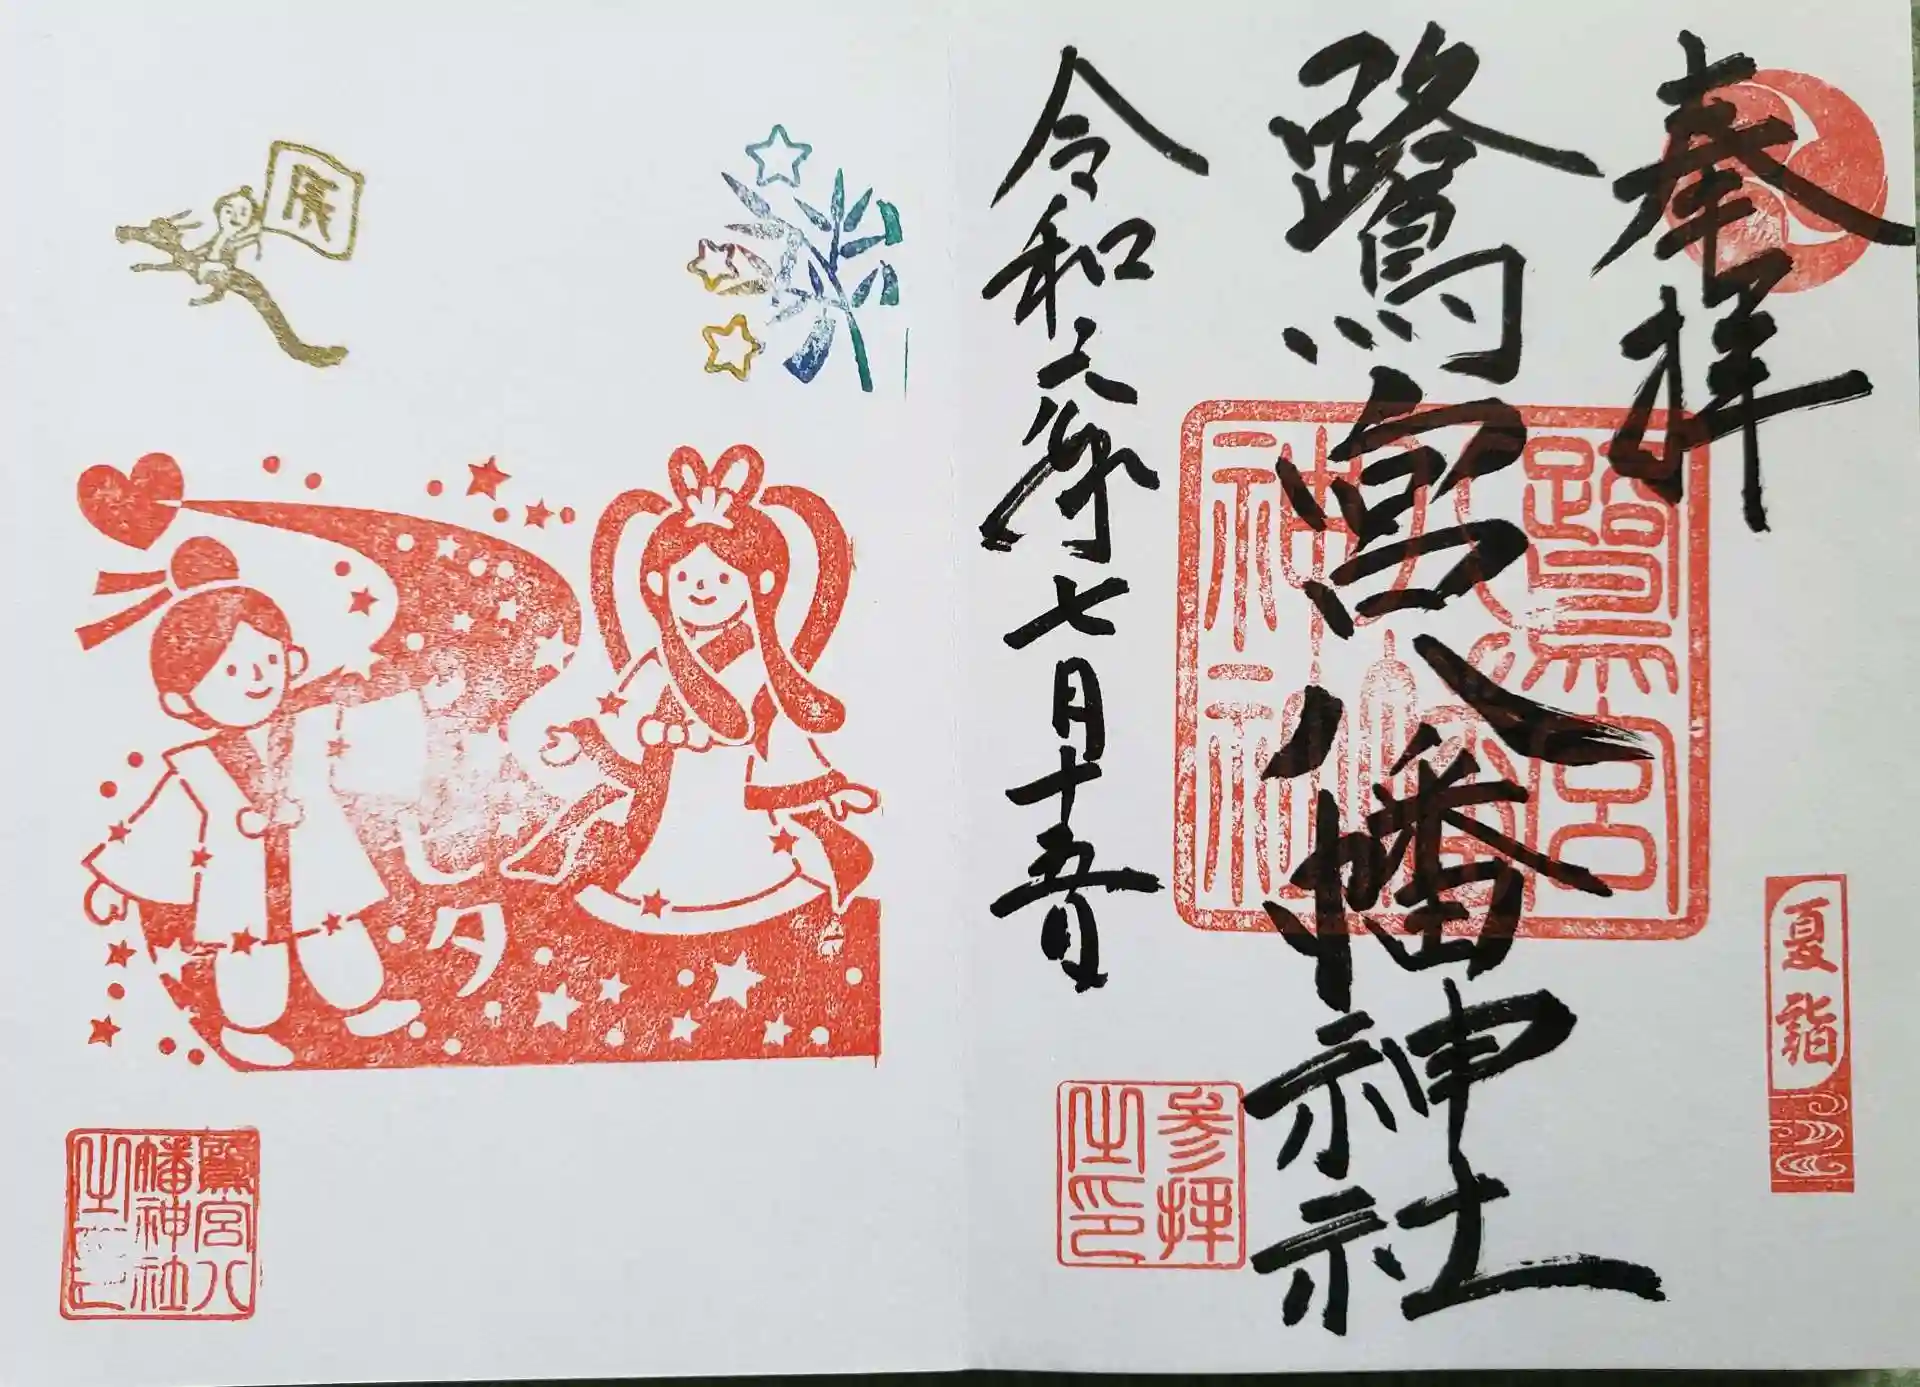 奉拝
鷺宮八幡神社
令和六年七月十五日
鷺宮
八幡
神社
夏詣
参拝
之印
夕
辰
鷺宮八
幡神社
之印